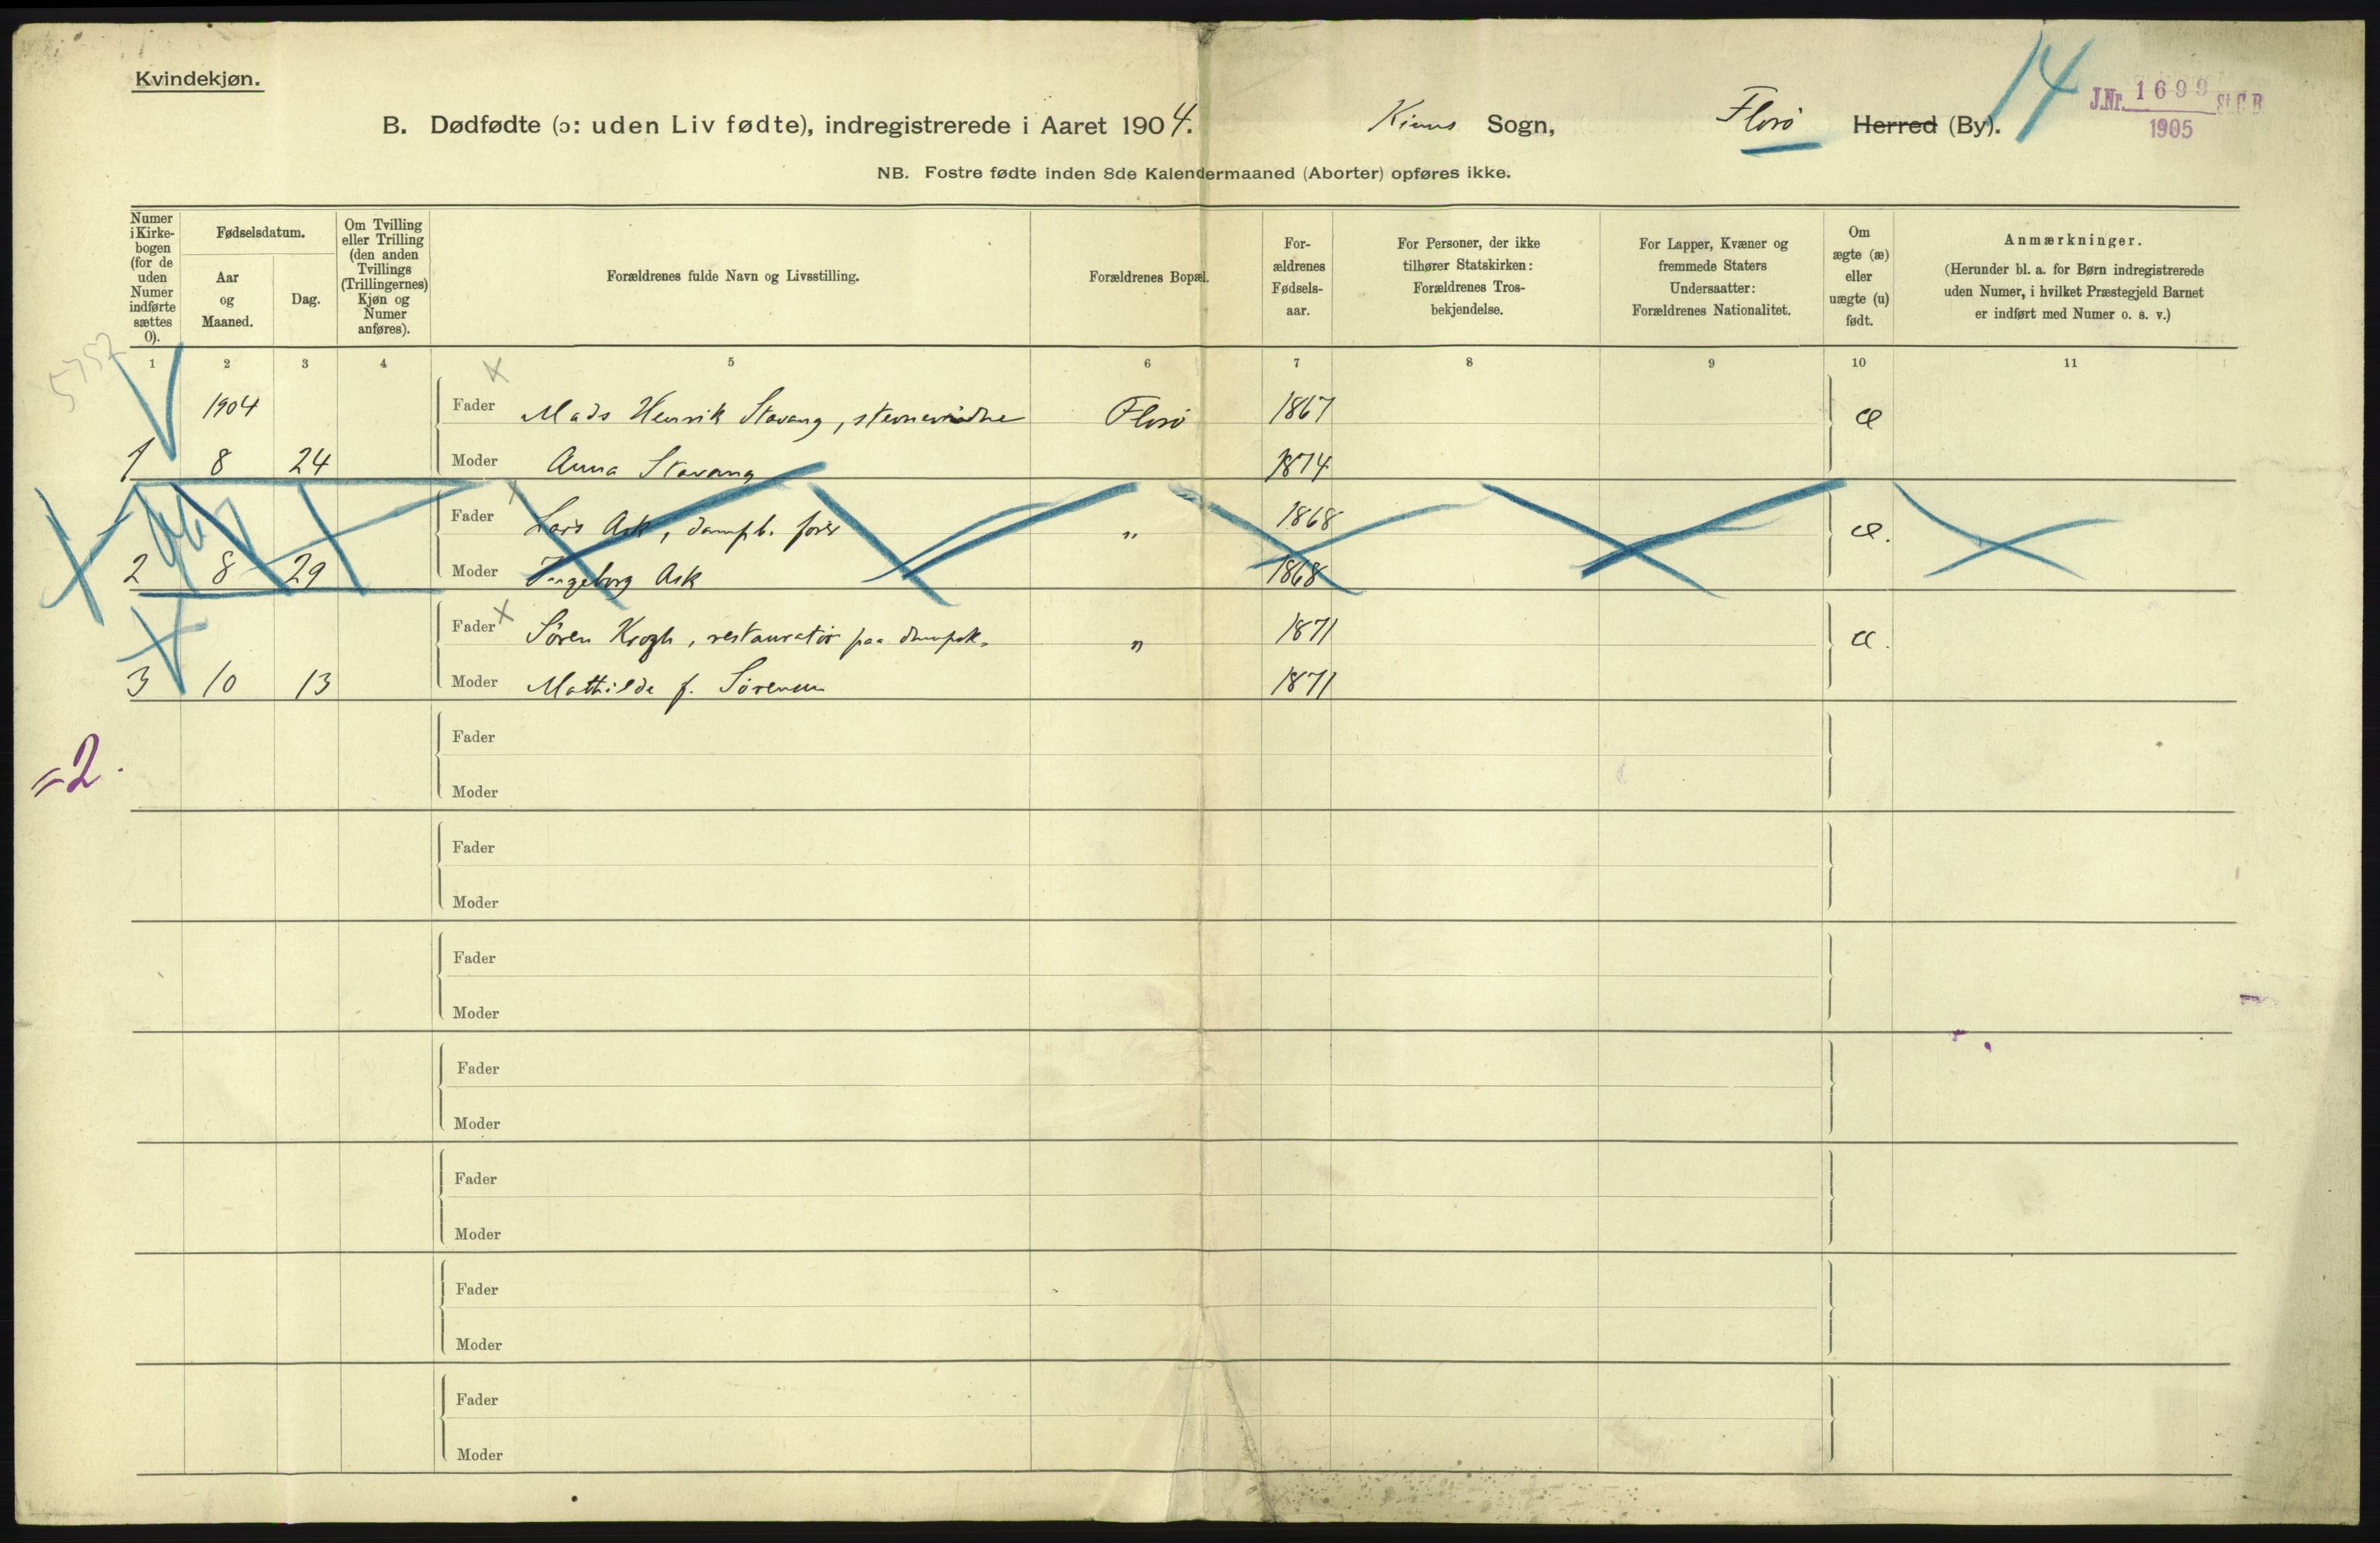 Kvindekjøn.
14
J.Nr. 1699 St.C.B
1905
B. Dødfødte (ɔ: uden Liv fødte), indregistrerede i Aaret 1904. Kinns Sogn, Florö Herred (By).
NB. Fostre fødte inden 8de Kalendermaaned (Aborter) opføres ikke.
Numer i Kirke-bogen (for de uden Numer indførte sættes 0).
Fødselsdatum.
Aar og Maaned.
Dag.
Om Tvilling eller Trilling (den anden Tvillings (Trillingernes) Kjøn og Numer anføres).
Forældrenes fulde Navn og Livsstilling.
Forældrenes Bopæl.
For-ældrenes Fødsels-aar.
For Personer, der ikke tilhører Statskirken: Forældrenes Tros-bekjendelse.
For Lapper, Kvæner og fremmede Staters Undersaatter: Forældrenes Nationalitet.
Om ægte (æ) eller uægte (u) født.
Anmærkninger.
(Herunder bl. a. for Børn indregistrerede uden Numer, i hvilket Præstegjeld Barnet er indført med Numer o. s. v.)
5752
1 2 3 4 5 6 7 8 9 10 11
1904 Fader Mads Henrik Stavang, stevnevidne Florö 1867 æ
1 8 24 Moder Anna Stavang 1874
Fader Lars Ask, dampb. förer " 1868 æ.
2 8 29 Moder Ingeborg Ask 1868
Fader Sören Krogh, restauratör paa dampsk. " 1871 æ.
3 10 13 Moder Mathilde f. Sörensen 1871
=2.
Fader
Moder
Fader
Moder
Fader
Moder
Fader
Moder
Fader
Moder
Fader
Moder
Fader
Moder